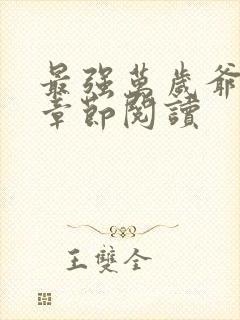 最强萬歲爺
章節閱讀
王雙全